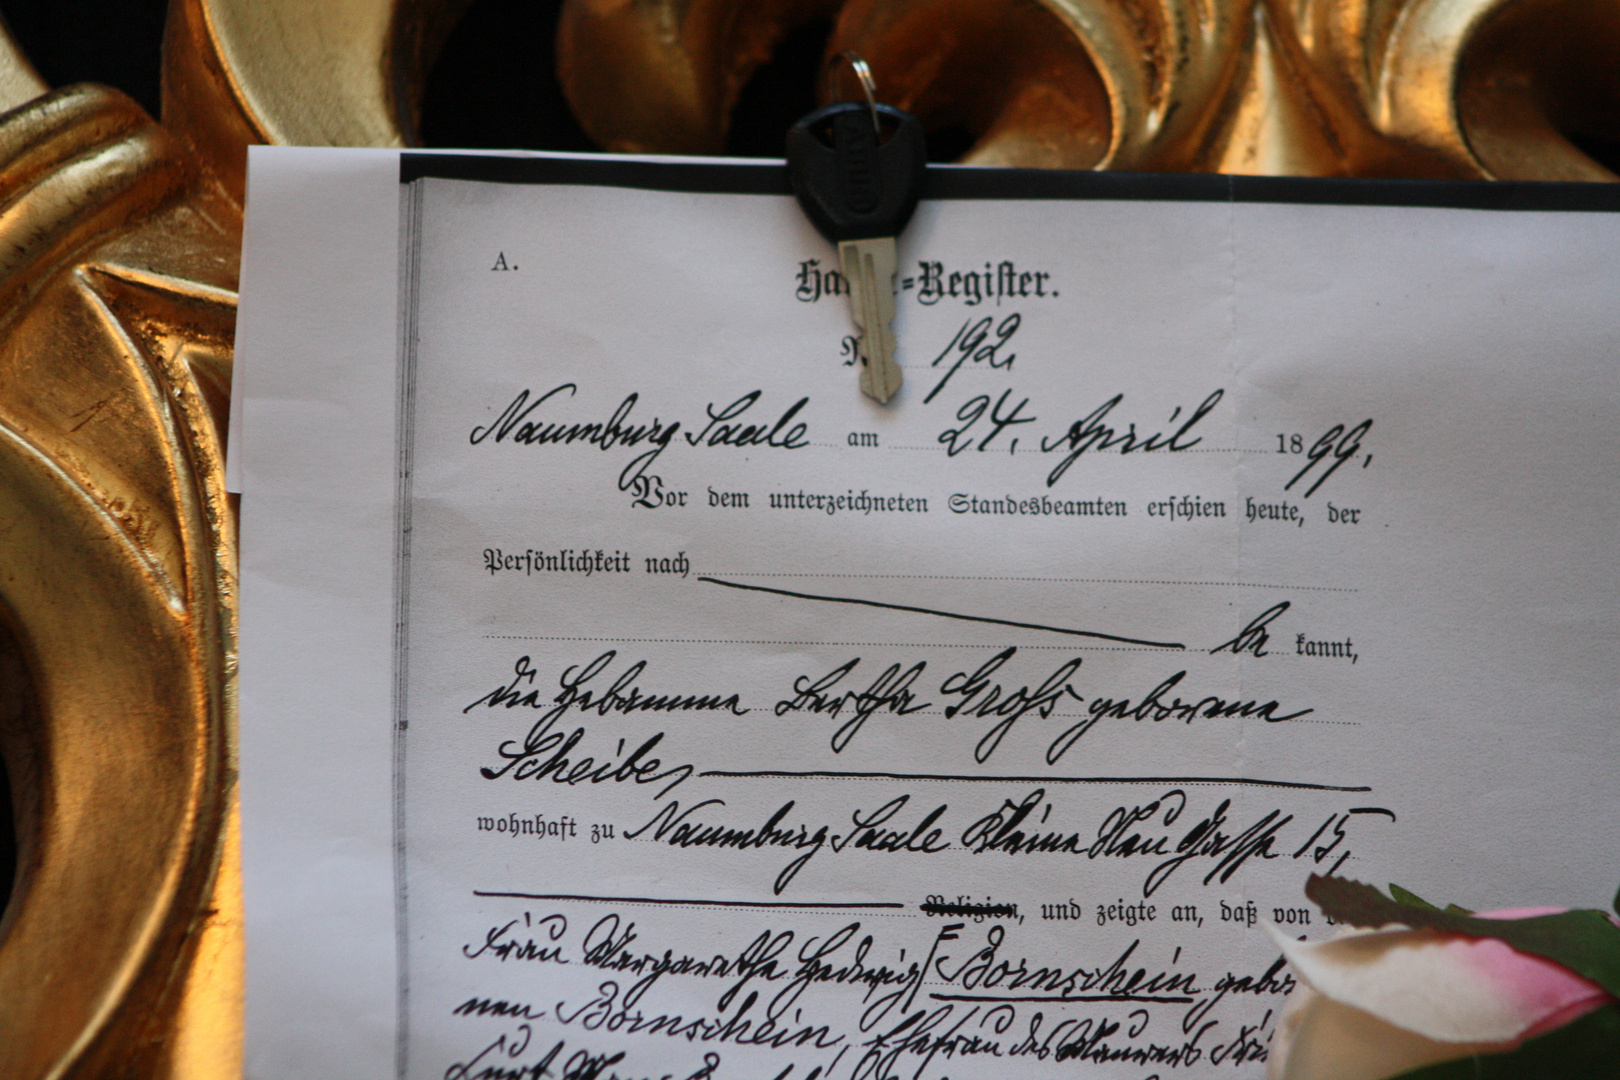 AURO
A.
Ha =Register.
N 192.
Naumburg Saale am 24. April 1899,
Vor dem unterzeichneten Standesbeamten erschien heute, der
Persönlichkeit nach
be kannt,
die Hebamme Bertha Groß geborene
Scheibe,
wohnhaft zu Naumburg Saale Kleine Neu Gasse 15,
Religion, und zeigte an, daß von
Frau Margarethe Hedwig Bornschein gebor
nen Bornschein, Ehefrau des Maurers
Kurt